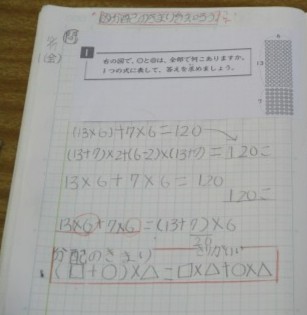 分配のきまりや
2/
1(金)
問
1
6
右の図で、○と◎は、全部で何こありますか。
1つの式に表して、答えを求めましょう。
13
7
(13×6)+7×6=120
(13+7)×2+(6-2)×(13+7)=120こ
13×6+7×6=120
120こ
13×6+7×6=(13+7)×6
20
分配のきまり
(□+○)×△=□×△+○×△